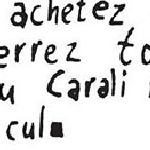 achetez
errez to
u Carali
cul